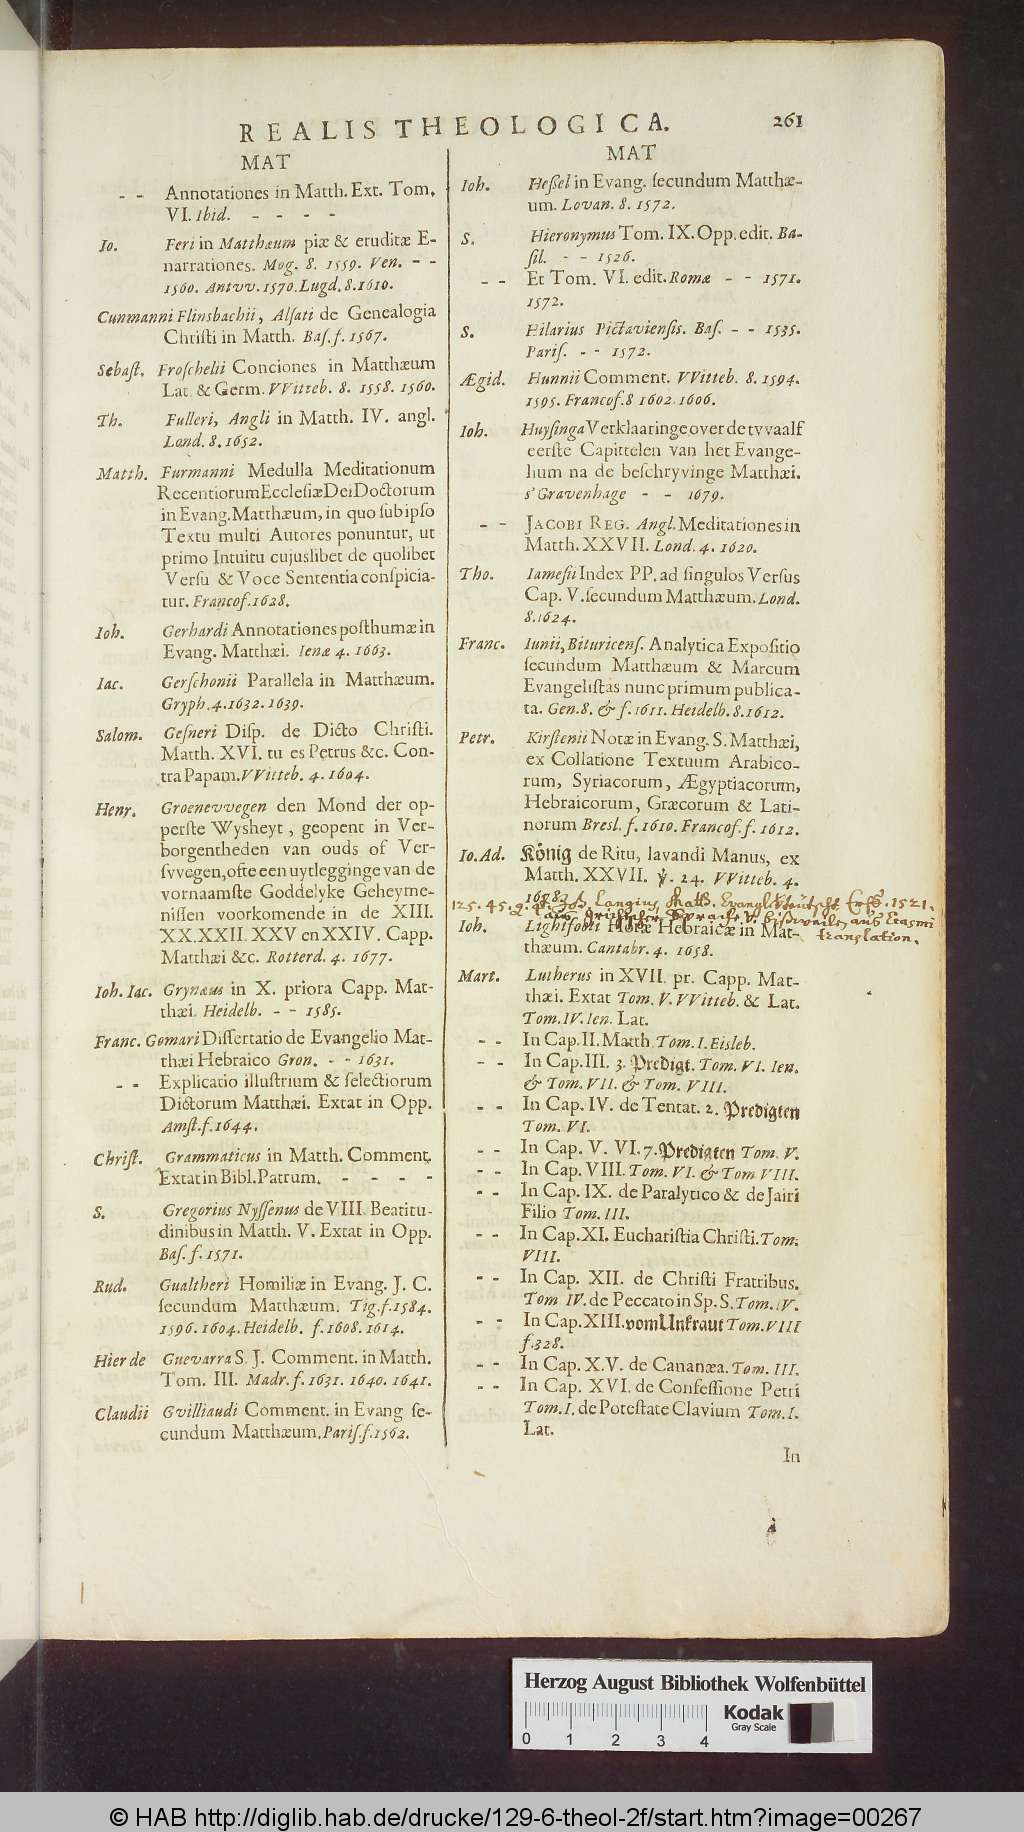 REALIS THEOLOGICA. 261
MAT
- - Annotationes in Matth. Ext. Tom.
VI. Ibid. - - - -
Io. Feri in Matthæum piæ & eruditæ E-
narrationes. Mog. 8. 1559. Ven. - -
1560. Antvv. 1570. Lugd. 8. 1610.
Cunmanni Flinsbachii, Alſati de Genealogia
Chriſti in Matth. Baſ. f. 1567.
Sebaſt. Froſchelii Conciones in Matthæum
Lat. & Germ. VVitteb. 8. 1558. 1560.
Th. Fulleri, Angli in Matth. IV. angl.
Lond. 8. 1652.
Matth. Furmanni Medulla Meditationum
Recentiorum Eccleſiæ Dei Doctorum
in Evang. Matthæum, in quo ſub ipſo
Textu multi Autores ponuntur, ut
primo Intuitu cujuslibet de quolibet
Verſu & Voce Sententia conſpicia-
tur. Francof. 1628.
Ioh. Gerhardi Annotationes poſthumæ in
Evang. Matthæi. Ienæ 4. 1663.
Iac. Gerſchonii Parallela in Matthæum.
Gryph. 4. 1632. 1639.
Salom. Geſneri Diſp. de Dicto Chriſti.
Matth. XVI. tu es Petrus &c. Con-
tra Papam. VVitteb. 4. 1604.
Henr. Groenevvegen den Mond der op-
perſte Wysheyt, geopent in Ver-
borgentheden van ouds of Ver-
ſvvegen, ofte een uytlegginge van de
vornaamſte Goddelyke Geheyme-
niſſen voorkomende in de XIII.
XX. XXII. XXV en XXIV. Capp.
Matthæi &c. Rotterd. 4. 1677.
Ioh. Iac. Grynæus in X. priora Capp. Mat-
thæi. Heidelb. - - 1585.
Franc. Gomari Diſſertatio de Evangelio Mat-
thæi Hebraico Gron. - - 1631.
- - Explicatio illuſtrium & ſelectiorum
Dictorum Matthæi. Extat in Opp.
Amſt. f. 1644.
Chriſt. Grammaticus in Matth. Comment.
Extat in Bibl. Patrum. - - - -
S. Gregorius Nyſſenus de VIII. Beatitu-
dinibus in Matth. V. Extat in Opp.
Baſ. f. 1571.
Rud. Gualtheri Homiliæ in Evang. J. C.
ſecundum Matthæum. Tig. f. 1584.
1596. 1604. Heidelb. f. 1608. 1614.
Hier de Guevarra S. J. Comment. in Matth.
Tom. III. Madr. f. 1631. 1640. 1641.
Claudii Gvilliaudi Comment. in Evang ſe-
cundum Matthæum. Pariſ. f. 1562.
MAT
Ioh. Heßel in Evang. ſecundum Matthæ-
um. Lovan. 8. 1572.
S. Hieronymus Tom. IX. Opp. edit. Ba-
ſil. - - 1526.
- - Et Tom. VI. edit. Romæ - - 1571.
1572.
S. Hilarius Pictavienſis. Baſ. - - 1535.
Pariſ. - - 1572.
Ægid. Hunnii Comment. VVitteb. 8. 1594.
1595. Francof. 8 1602. 1606.
Ioh. Huyſinga Verklaaringe over de tvvaalf
eerſte Capittelen van het Evange-
lium na de beſchryvinge Matthæi.
s'Gravenhage - - 1679.
- - JACOBI REG. Angl. Meditationes in
Matth. XXVII. Lond. 4. 1620.
Tho. Iameſii Index PP. ad ſingulos Verſus
Cap. V. ſecundum Matthæum. Lond.
8. 1624.
Franc. Iunii, Bituricenſ. Analytica Expoſitio
ſecundum Matthæum & Marcum
Evangeliſtas nunc primum publica-
ta. Gen. 8. & f. 1611. Heidelb. 8. 1612.
Petr. Kirſtenii Notæ in Evang. S. Matthæi,
ex Collatione Textuum Arabico-
rum, Syriacorum, Ægyptiacorum,
Hebraicorum, Græcorum & Lati-
norum Bresl. f. 1610. Francof. f. 1612.
Io. Ad. König de Ritu, lavandi Manus, ex
Matth. XXVII. ℣. 24. VVitteb. 4.
125. 45. q. 4. Joh. Langius, Matth. Evangel. teutsch. Erff. 1521.
aus griechischer Sprache, v. bißweilen aus Erasmi
translation.
Ioh. Lightfooti Horæ Hebraicæ in Mat-
thæum. Cantabr. 4. 1658.
Mart. Lutherus in XVII. pr. Capp. Mat-
thæi. Extat Tom. V. VVitteb. & Lat.
Tom. IV. Ien. Lat.
- - In Cap. II. Matth. Tom. I. Eisleb.
- - In Cap. III. 3. Predigt. Tom. VI. Ien.
& Tom. VII. & Tom. VIII.
- - In Cap. IV. de Tentat. 2. Predigten
Tom. VI.
- - In Cap. V. VI. 7. Predigten Tom. V.
- - In Cap. VIII. Tom. VI. & Tom VIII.
- - In Cap. IX. de Paralytico & de Jairi
Filio Tom. III.
- - In Cap. XI. Euchariſtia Chriſti. Tom.
VIII.
- - In Cap. XII. de Chriſti Fratribus.
Tom IV. de Peccato in Sp. S. Tom. IV.
- - In Cap. XIII. vom Unkraut Tom. VIII
f. 328.
- - In Cap. XV. de Cananæa. Tom. III.
- - In Cap. XVI. de Confeſſione Petri
Tom. I. de Poteſtate Clavium Tom. I.
Lat.
In
Herzog August Bibliothek Wolfenbüttel
Kodak
Gray Scale
0 1 2 3 4
© HAB http://diglib.hab.de/drucke/129-6-theol-2f/start.htm?image=00267